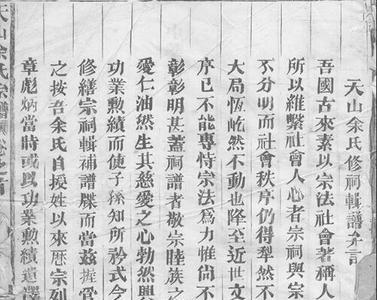 天山余氏修祠輯譜弁言
吾國古來素以宗法社會著稱人
所以維繫社會人心者宗祠與宗
不分明而社會秩序仍得犁然不
大局恆屹然不動也降至近世文
序已不能專恃宗法為力惟尚不
彰彰明甚蓋祠譜者敬宗睦族之
愛仁油然生其慈愛之心勃然興
功業勳績而使子孫知所矜式今
修繕宗祠輯補譜牒而當茲握管
之按吾余氏自授姓以來歷宗列
章彪炳當時或以功業勳績遺澤
天山余氏宗譜